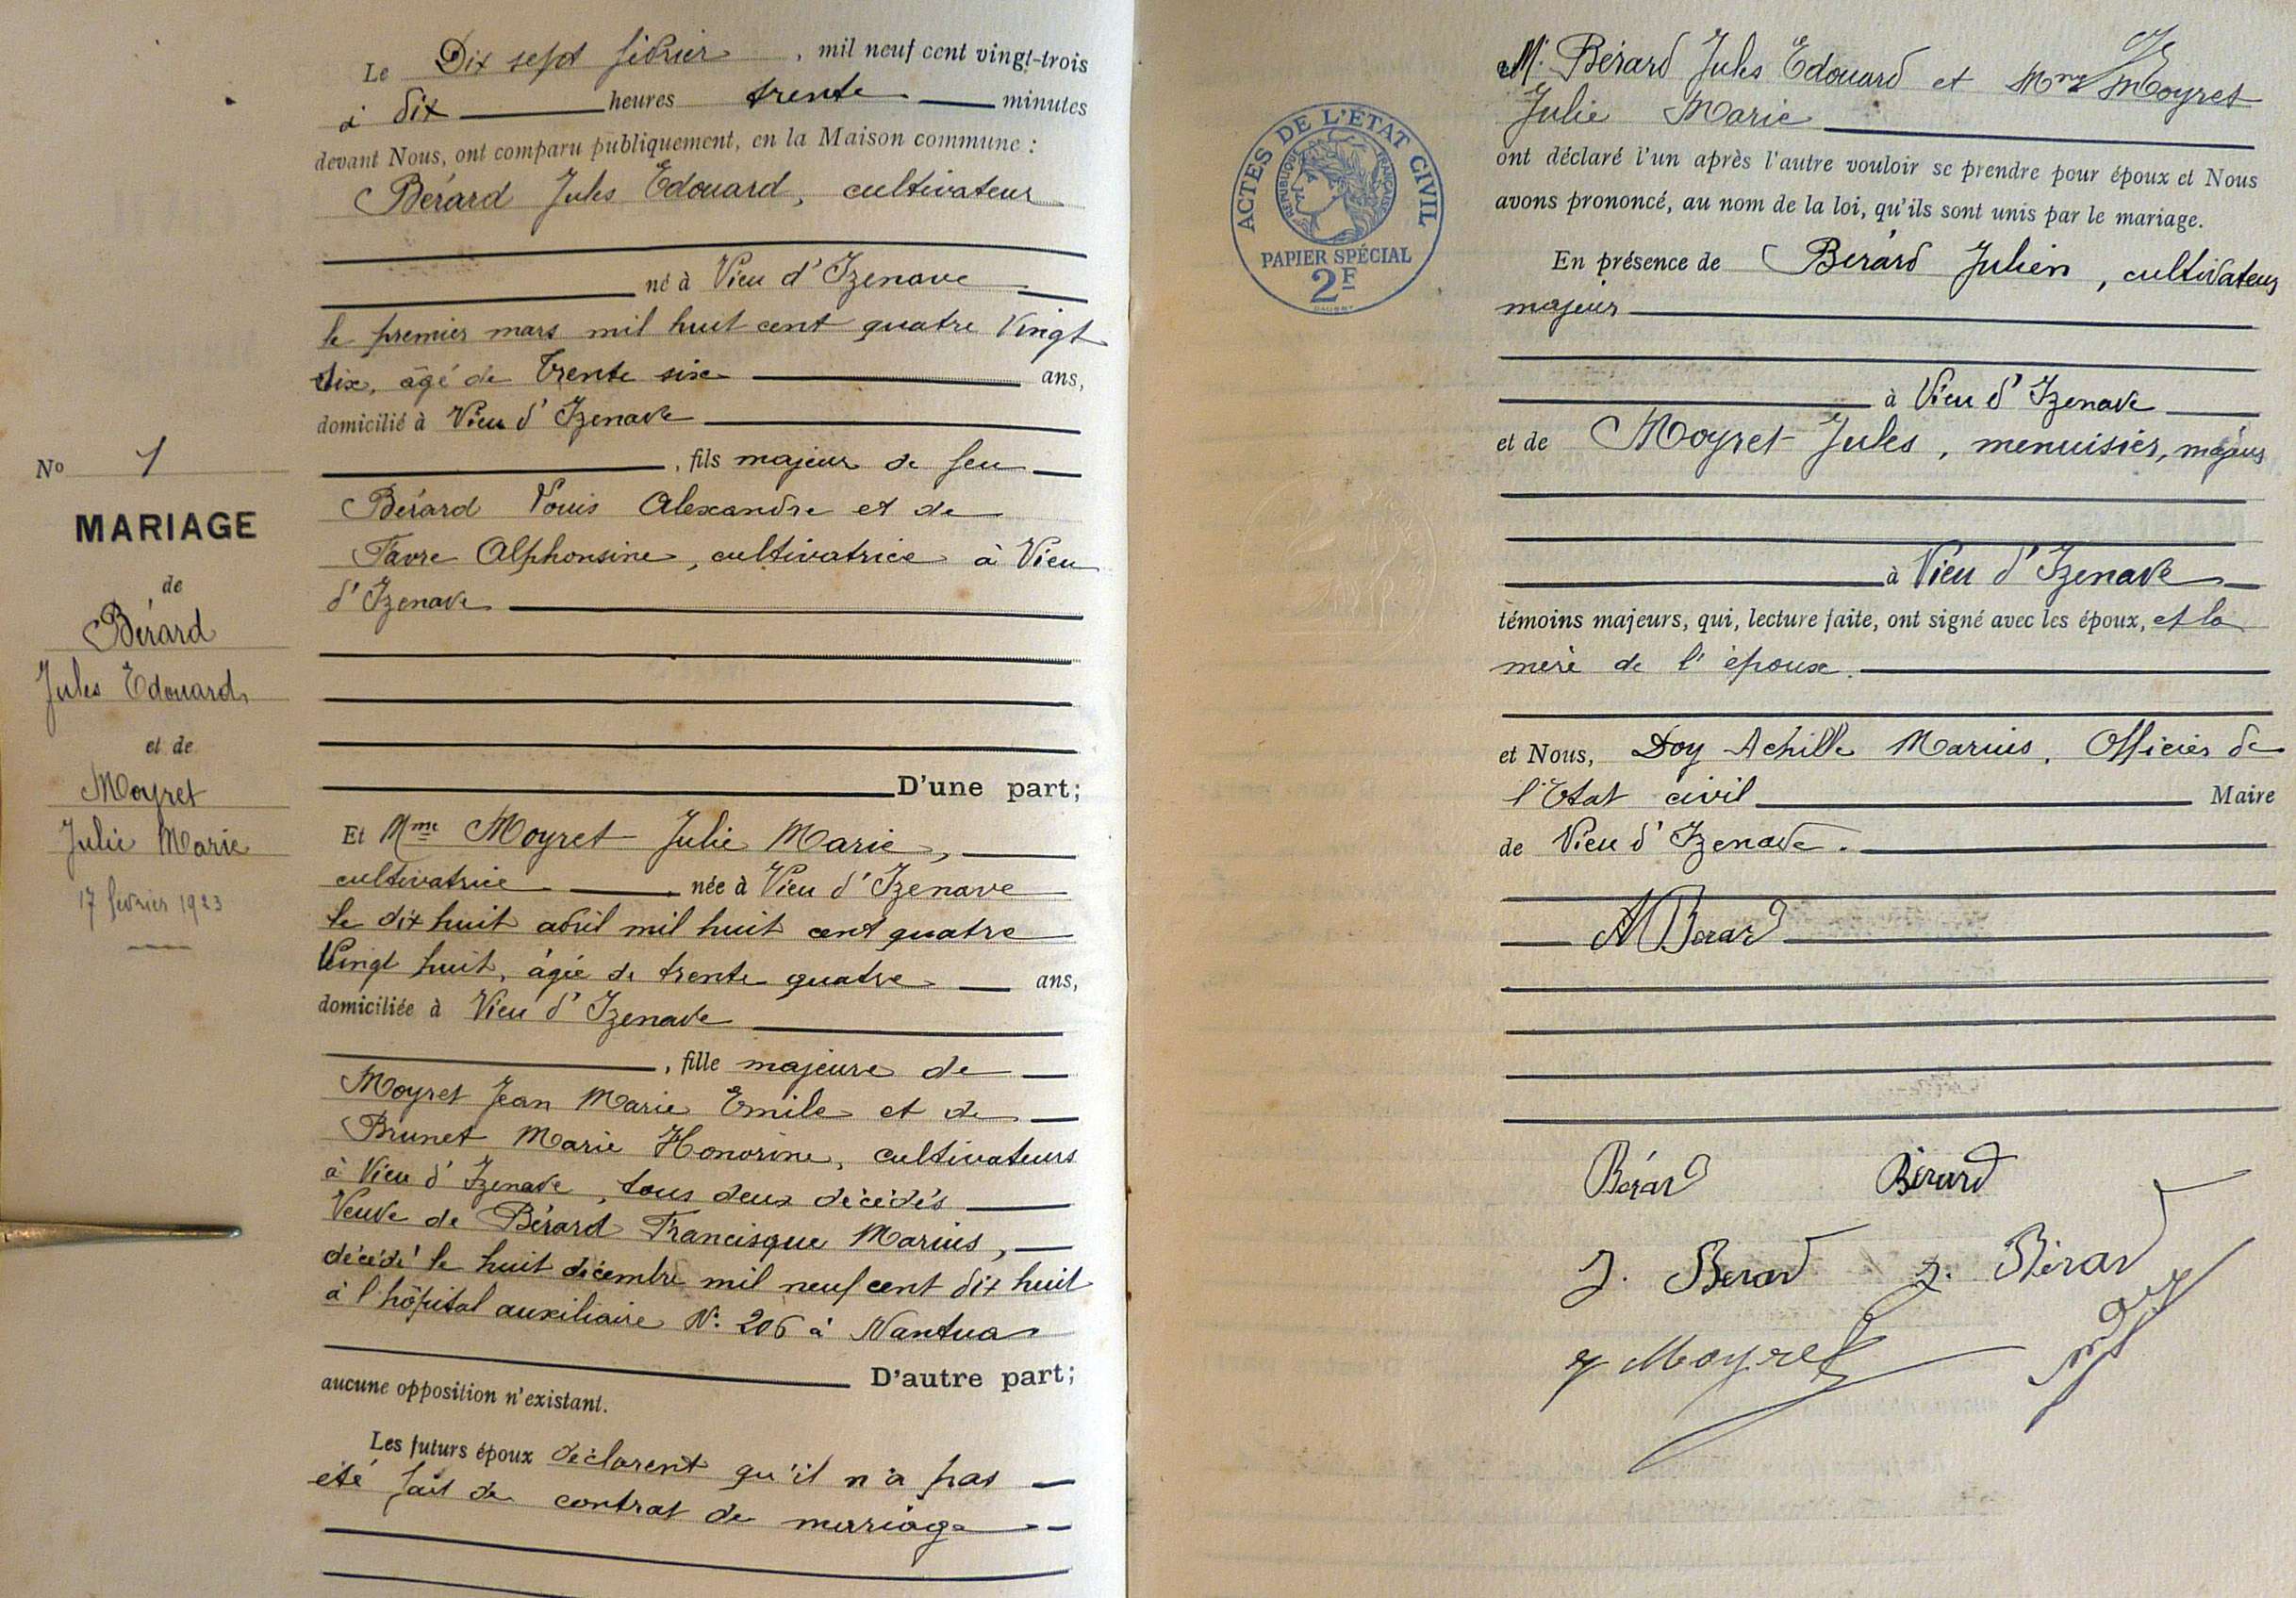 Le Dix sept février, mil neuf cent vingt-trois
à dix heures trente minutes
devant Nous, ont comparu publiquement, en la Maison commune :
Bérard Jules Edouard, cultivateur
né à Vieu d'Izenave
le premier mars mil huit cent quatre vingt
dix, âgé de trente six ans,
domicilié à Vieu d'Izenave
, fils majeur de feu
Bérard Louis Alexandre et de
Favre Alphonsine, cultivatrice à Vieu
d'Izenave
D'une part;
Et Mme Moyret Julie Marie,
cultivatrice née à Vieu d'Izenave
le dix huit avril mil huit cent quatre
vingt huit, âgée de trente quatre ans,
domiciliée à Vieu d'Izenave
, fille majeure de
Moyret Jean Marie Emile et de
Brunet Marie Honorine, cultivateurs
à Vieu d'Izenave, tous deux décédés
Veuve de Bérard Francisque Marius,
décédé le huit décembre mil neuf cent dix huit
à l'hôpital auxiliaire N° 206 à Nantua
D'autre part;
aucune opposition n'existant.
Les futurs époux déclarent qu'il n'a pas
été fait de contrat de mariage
No 1
MARIAGE
de
Bérard
Jules Edouard,
et de
Moyret
Julie Marie
17 février 1923
M. Bérard Jules Edouard et Mme Moyret
Julie Marie
ont déclaré l'un après l'autre vouloir se prendre pour époux et Nous
avons prononcé, au nom de la loi, qu'ils sont unis par le mariage.
En présence de Bérard Julien, cultivateur
majeur
à Vieu d'Izenave
et de Moyret Jules, menuisier, majeur
à Vieu d'Izenave
témoins majeurs, qui, lecture faite, ont signé avec les époux, et la
mère de l'époux.
et Nous, Doy Achille Marius, Officier de
l'Etat civil Maire
de Vieu d'Izenave.
A Berard
Bérard Bérard
J. Berard J. Bérard
J Moyret
ACTES DE L'ÉTAT CIVIL
RÉPUBLIQUE FRANÇAISE
PAPIER SPÉCIAL
2F